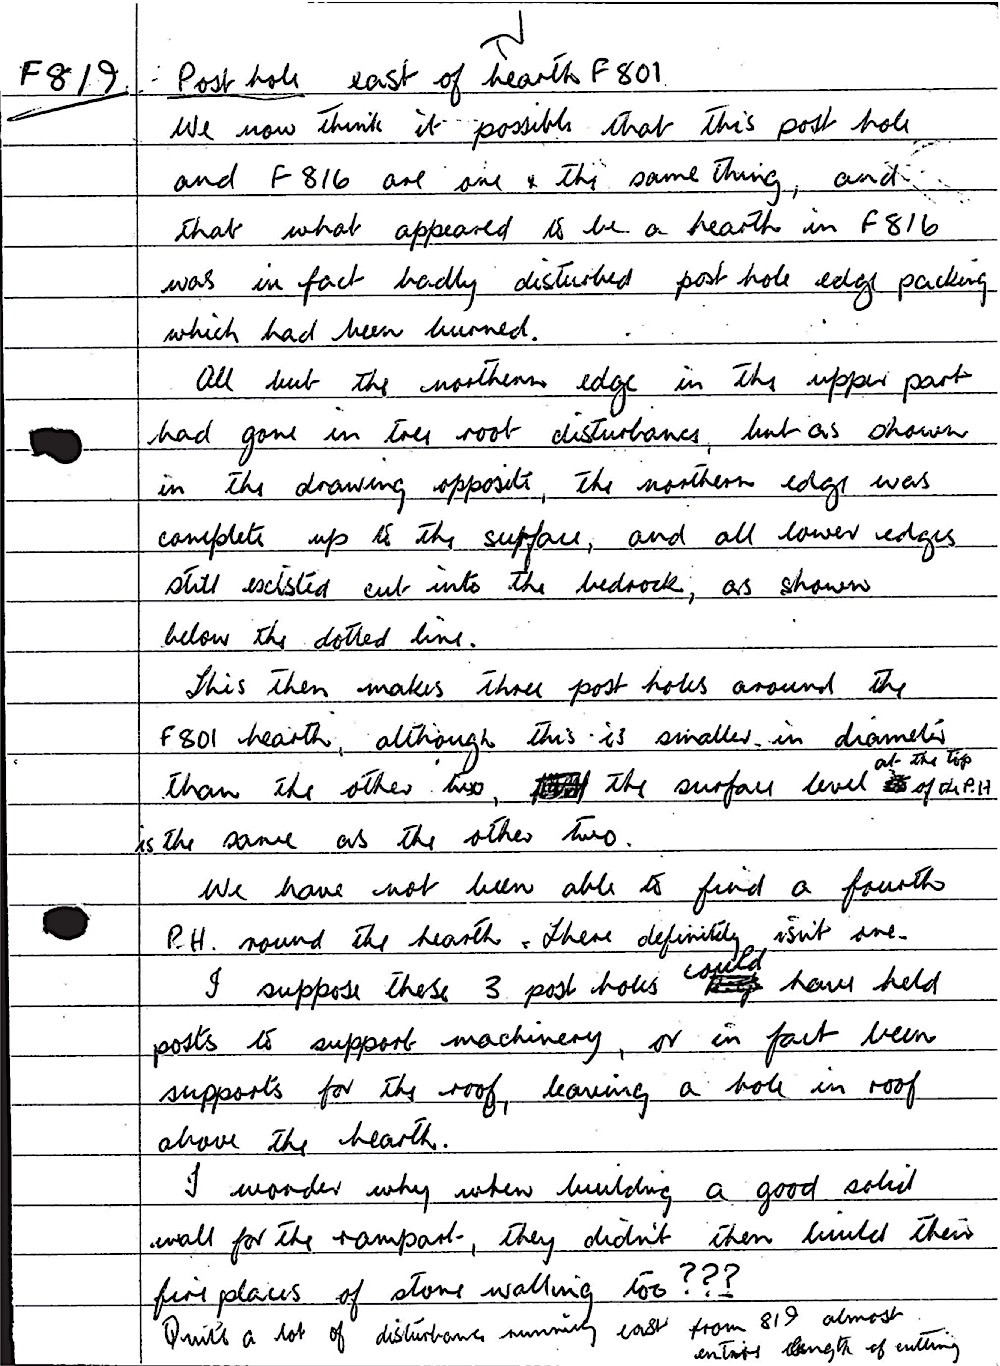 F819 : Post hole east of hearth F801
We now think it possible that this post hole
and F816 are one & the same thing, and
that what appeared to be a hearth in F816
was in fact badly disturbed post hole edge packing
which had been burned.
All but the northern edge in the upper part
had gone in tree root disturbance, but as shown
in the drawing opposite, the northern edge was
complete up to the surface, and all lower edges
still excisted cut into the bedrock, as shown
below the dotted line.
This then makes three post holes around the
F801 hearth, although this is smaller in diameter
than the other two, the surface level at the top of the P.H
is the same as the other two.
We have not been able to find a fourth
P.H. round the hearth. There definitely isn't one.
I suppose these 3 post holes could have held
posts to support machinery, or in fact been
supports for the roof, leaving a hole in roof
above the hearth.
I wonder why when building a good solid
wall for the rampart, they didn't then build their
fire places of stone walling too???
Quite a lot of disturbance running east from 819 almost
entire length of cutting